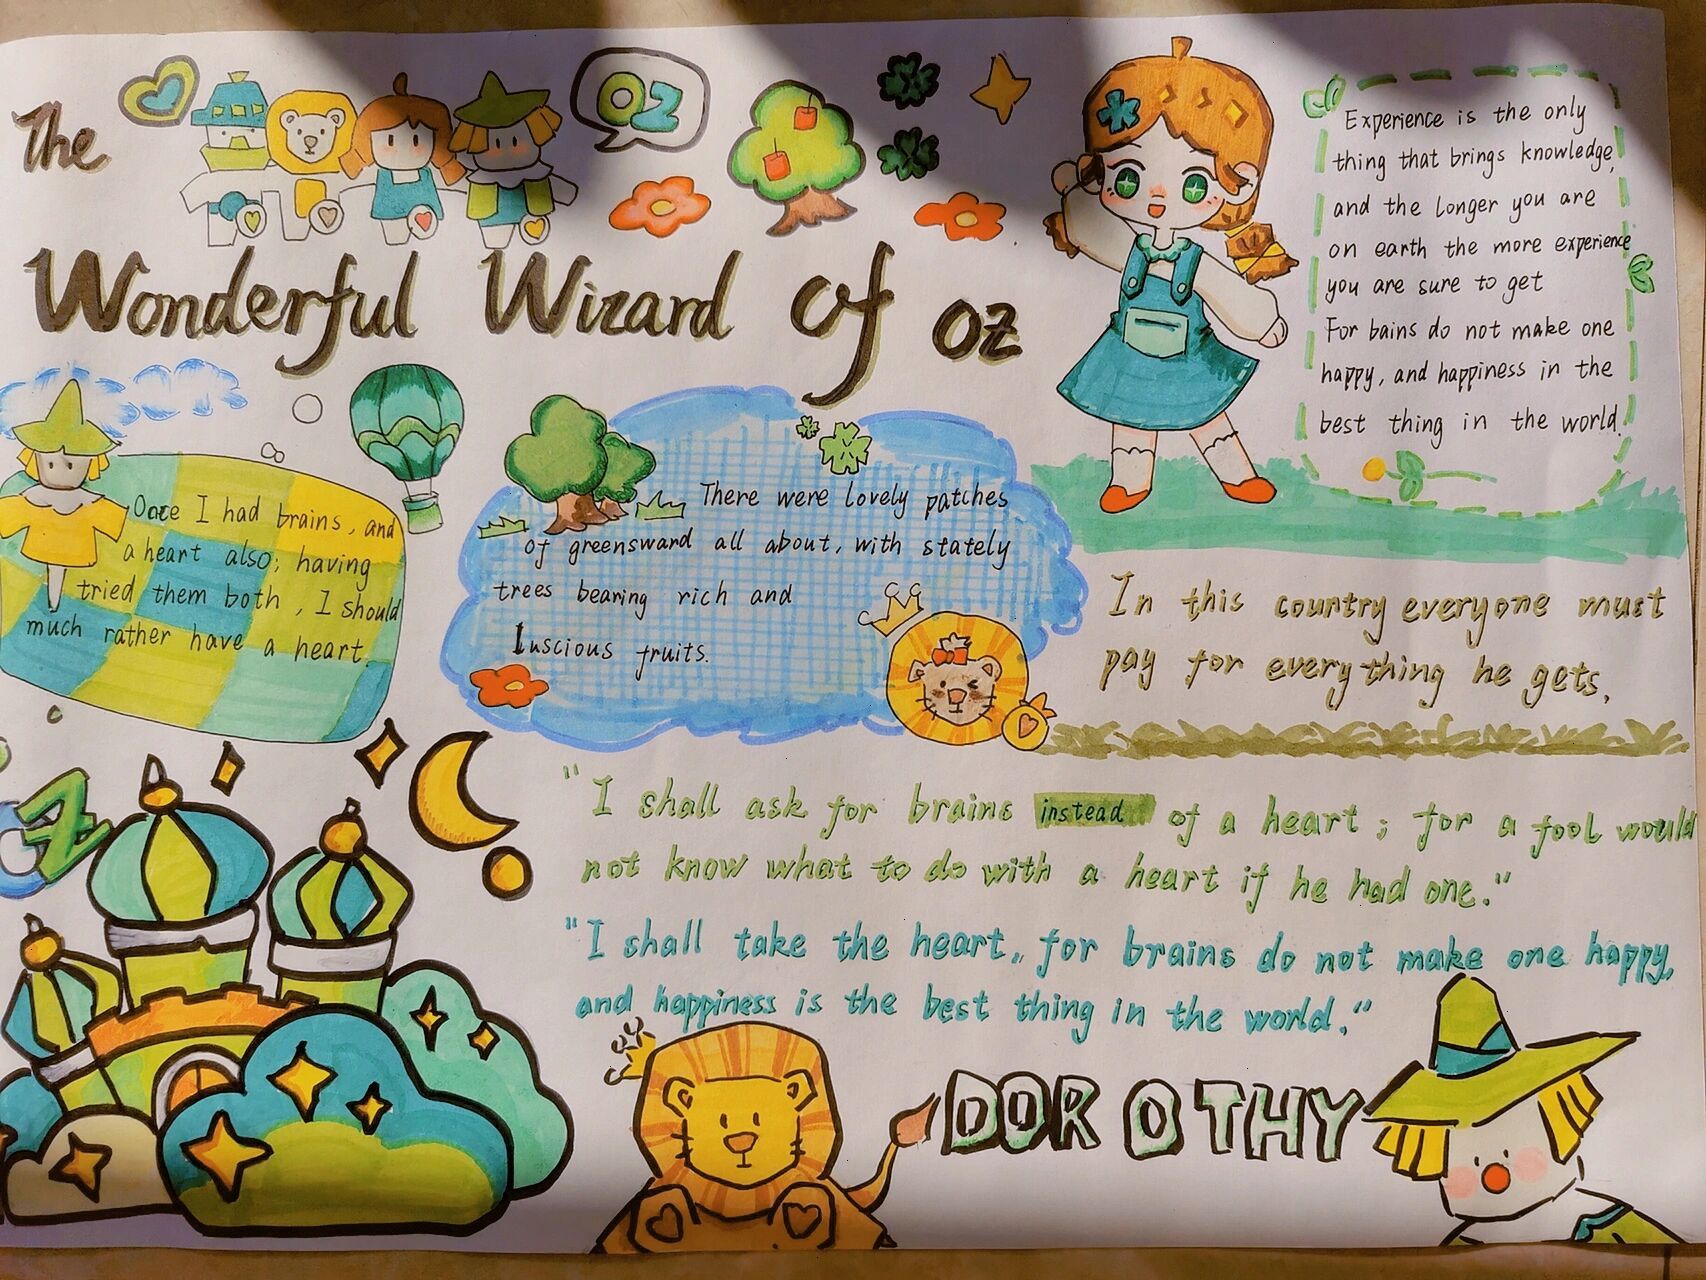 The
OZ
Wonderful Wizard of OZ
Experience is the only
thing that brings knowledge,
and the longer you are
on earth the more experience
you are sure to get
For bains do not make one
happy, and happiness in the
best thing in the world.
Once I had brains, and
a heart also; having
tried them both, I should
much rather have a heart.
There were lovely patches
of greensward all about, with stately
trees bearing rich and
luscious fruits.
In this country everyone must
pay for everything he gets.
OZ
"I shall ask for brains instead of a heart; for a fool would
not know what to do with a heart if he had one."
"I shall take the heart, for brains do not make one happy,
and happiness is the best thing in the world."
DOROTHY